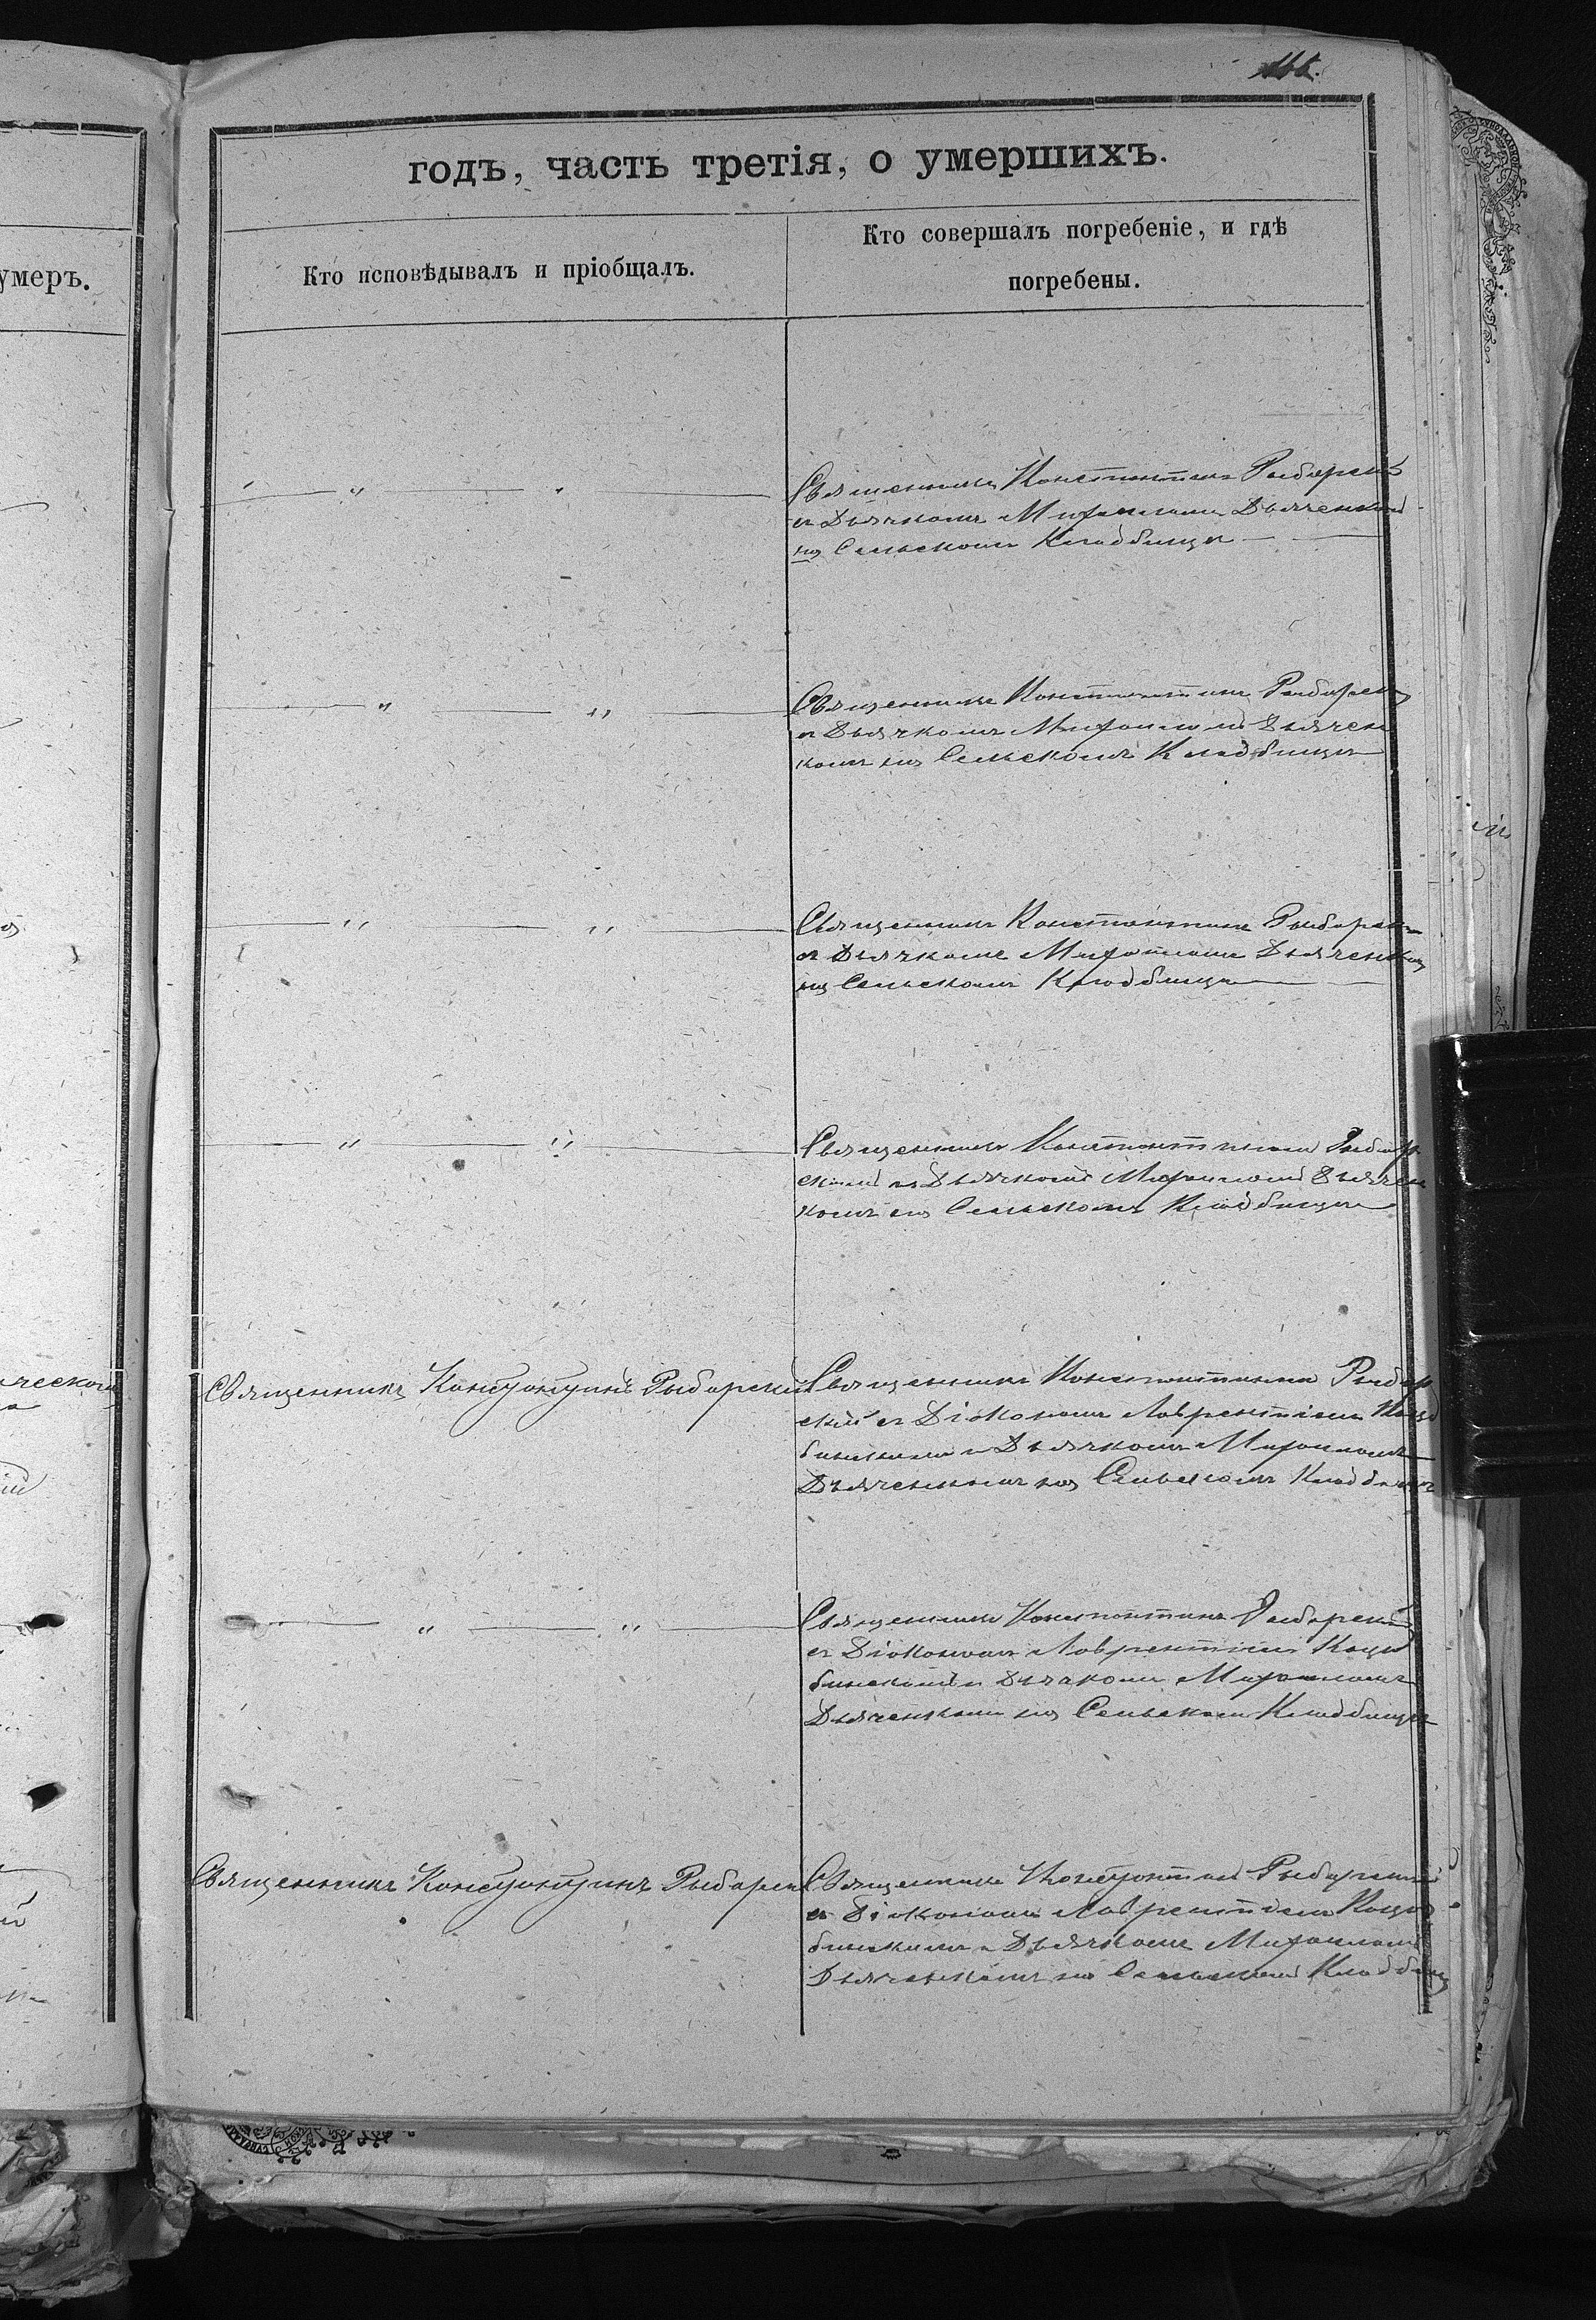 годъ, часть третія, о умершихъ.
умеръ.
Кто исповѣдывалъ и пріобщалъ.
Кто совершалъ погребеніе, и гдѣ
погребены.
Священникъ Константинъ Рыбарскій
съ Дьячкомъ Михаиломъ Дьяченкомъ
на Сельскомъ Кладбищѣ
Священникъ Константинъ Рыбарскій
съ Дьячкомъ Михаиломъ Дьячен
комъ на Сельскомъ Кладбищѣ
Священникъ Константинъ Рыбарскій
съ Дьячкомъ Михаиломъ Дьяченкомъ
на Сельскомъ Кладбищѣ
Священникъ Константинъ Рыбар
скій съ Дьячкомъ Михаиломъ Дьячен
комъ на Сельскомъ Кладбищѣ
Священникъ Константинъ Рыбарскій
Священникъ Константинъ Рыбар
скій съ Діакономъ Лаврентіемъ Коцю
бинскимъ и Дьячкомъ Михаиломъ
Дьяченкомъ на Сельскомъ Кладбищѣ
Священникъ Константинъ Рыбарскій
съ Діакономъ Лаврентіемъ Коцю
бинскимъ и Дьячкомъ Михаиломъ
Дьяченкомъ на Сельскомъ Кладбищѣ
Священникъ Константинъ Рыбарскій
Священникъ Константинъ Рыбарскій
съ Діакономъ Лаврентіемъ Коцю
бинскимъ и Дьячкомъ Михаиломъ
Дьяченкомъ на Сельскомъ Кладбищѣ